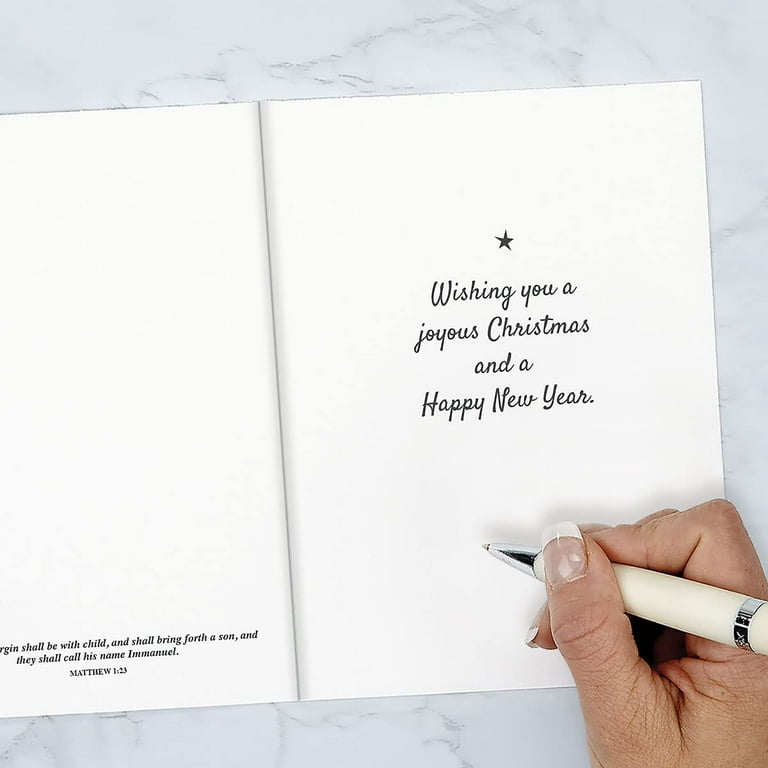 Wishing you a
joyous Christmas
and a
Happy New Year.
shall be with child, and shall bring forth a son, and
they shall call his name Immanuel.
MATTHEW 1:23